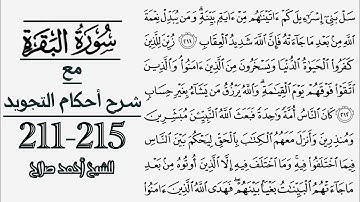 سُورَةُ الْبَقَرَةِ
مع
شرح أحكام التجويد
211-215
للشيخ أحمد صلاح
سَلْ بَنِي إِسْرَائِيلَ كَمْ آتَيْنَاهُم مِّنْ آيَةٍ بَيِّنَةٍ وَمَن يُبَدِّلْ نِعْمَةَ
اللَّهِ مِن بَعْدِ مَا جَاءَتْهُ فَإِنَّ اللَّهَ شَدِيدُ الْعِقَابِ ٢١١ زُيِّنَ لِلَّذِينَ
كَفَرُوا الْحَيَوٰةُ الدُّنْيَا وَيَسْخَرُونَ مِنَ الَّذِينَ آمَنُوا وَالَّذِينَ
اتَّقَوْا فَوْقَهُمْ يَوْمَ الْقِيَامَةِ وَاللَّهُ يَرْزُقُ مَن يَشَاءُ بِغَيْرِ حِسَابٍ
٢١٢ كَانَ النَّاسُ أُمَّةً وَاحِدَةً فَبَعَثَ اللَّهُ النَّبِيِّينَ مُبَشِّرِينَ
وَمُنذِرِينَ وَأَنزَلَ مَعَهُمُ الْكِتَابَ بِالْحَقِّ لِيَحْكُمَ بَيْنَ النَّاسِ
فِيمَا اخْتَلَفُوا فِيهِ وَمَا اخْتَلَفَ فِيهِ إِلَّا الَّذِينَ أُوتُوهُ مِن بَعْدِ
مَا جَاءَتْهُمُ الْبَيِّنَاتُ بَغْيًا بَيْنَهُمْ فَهَدَى اللَّهُ الَّذِينَ آمَنُوا